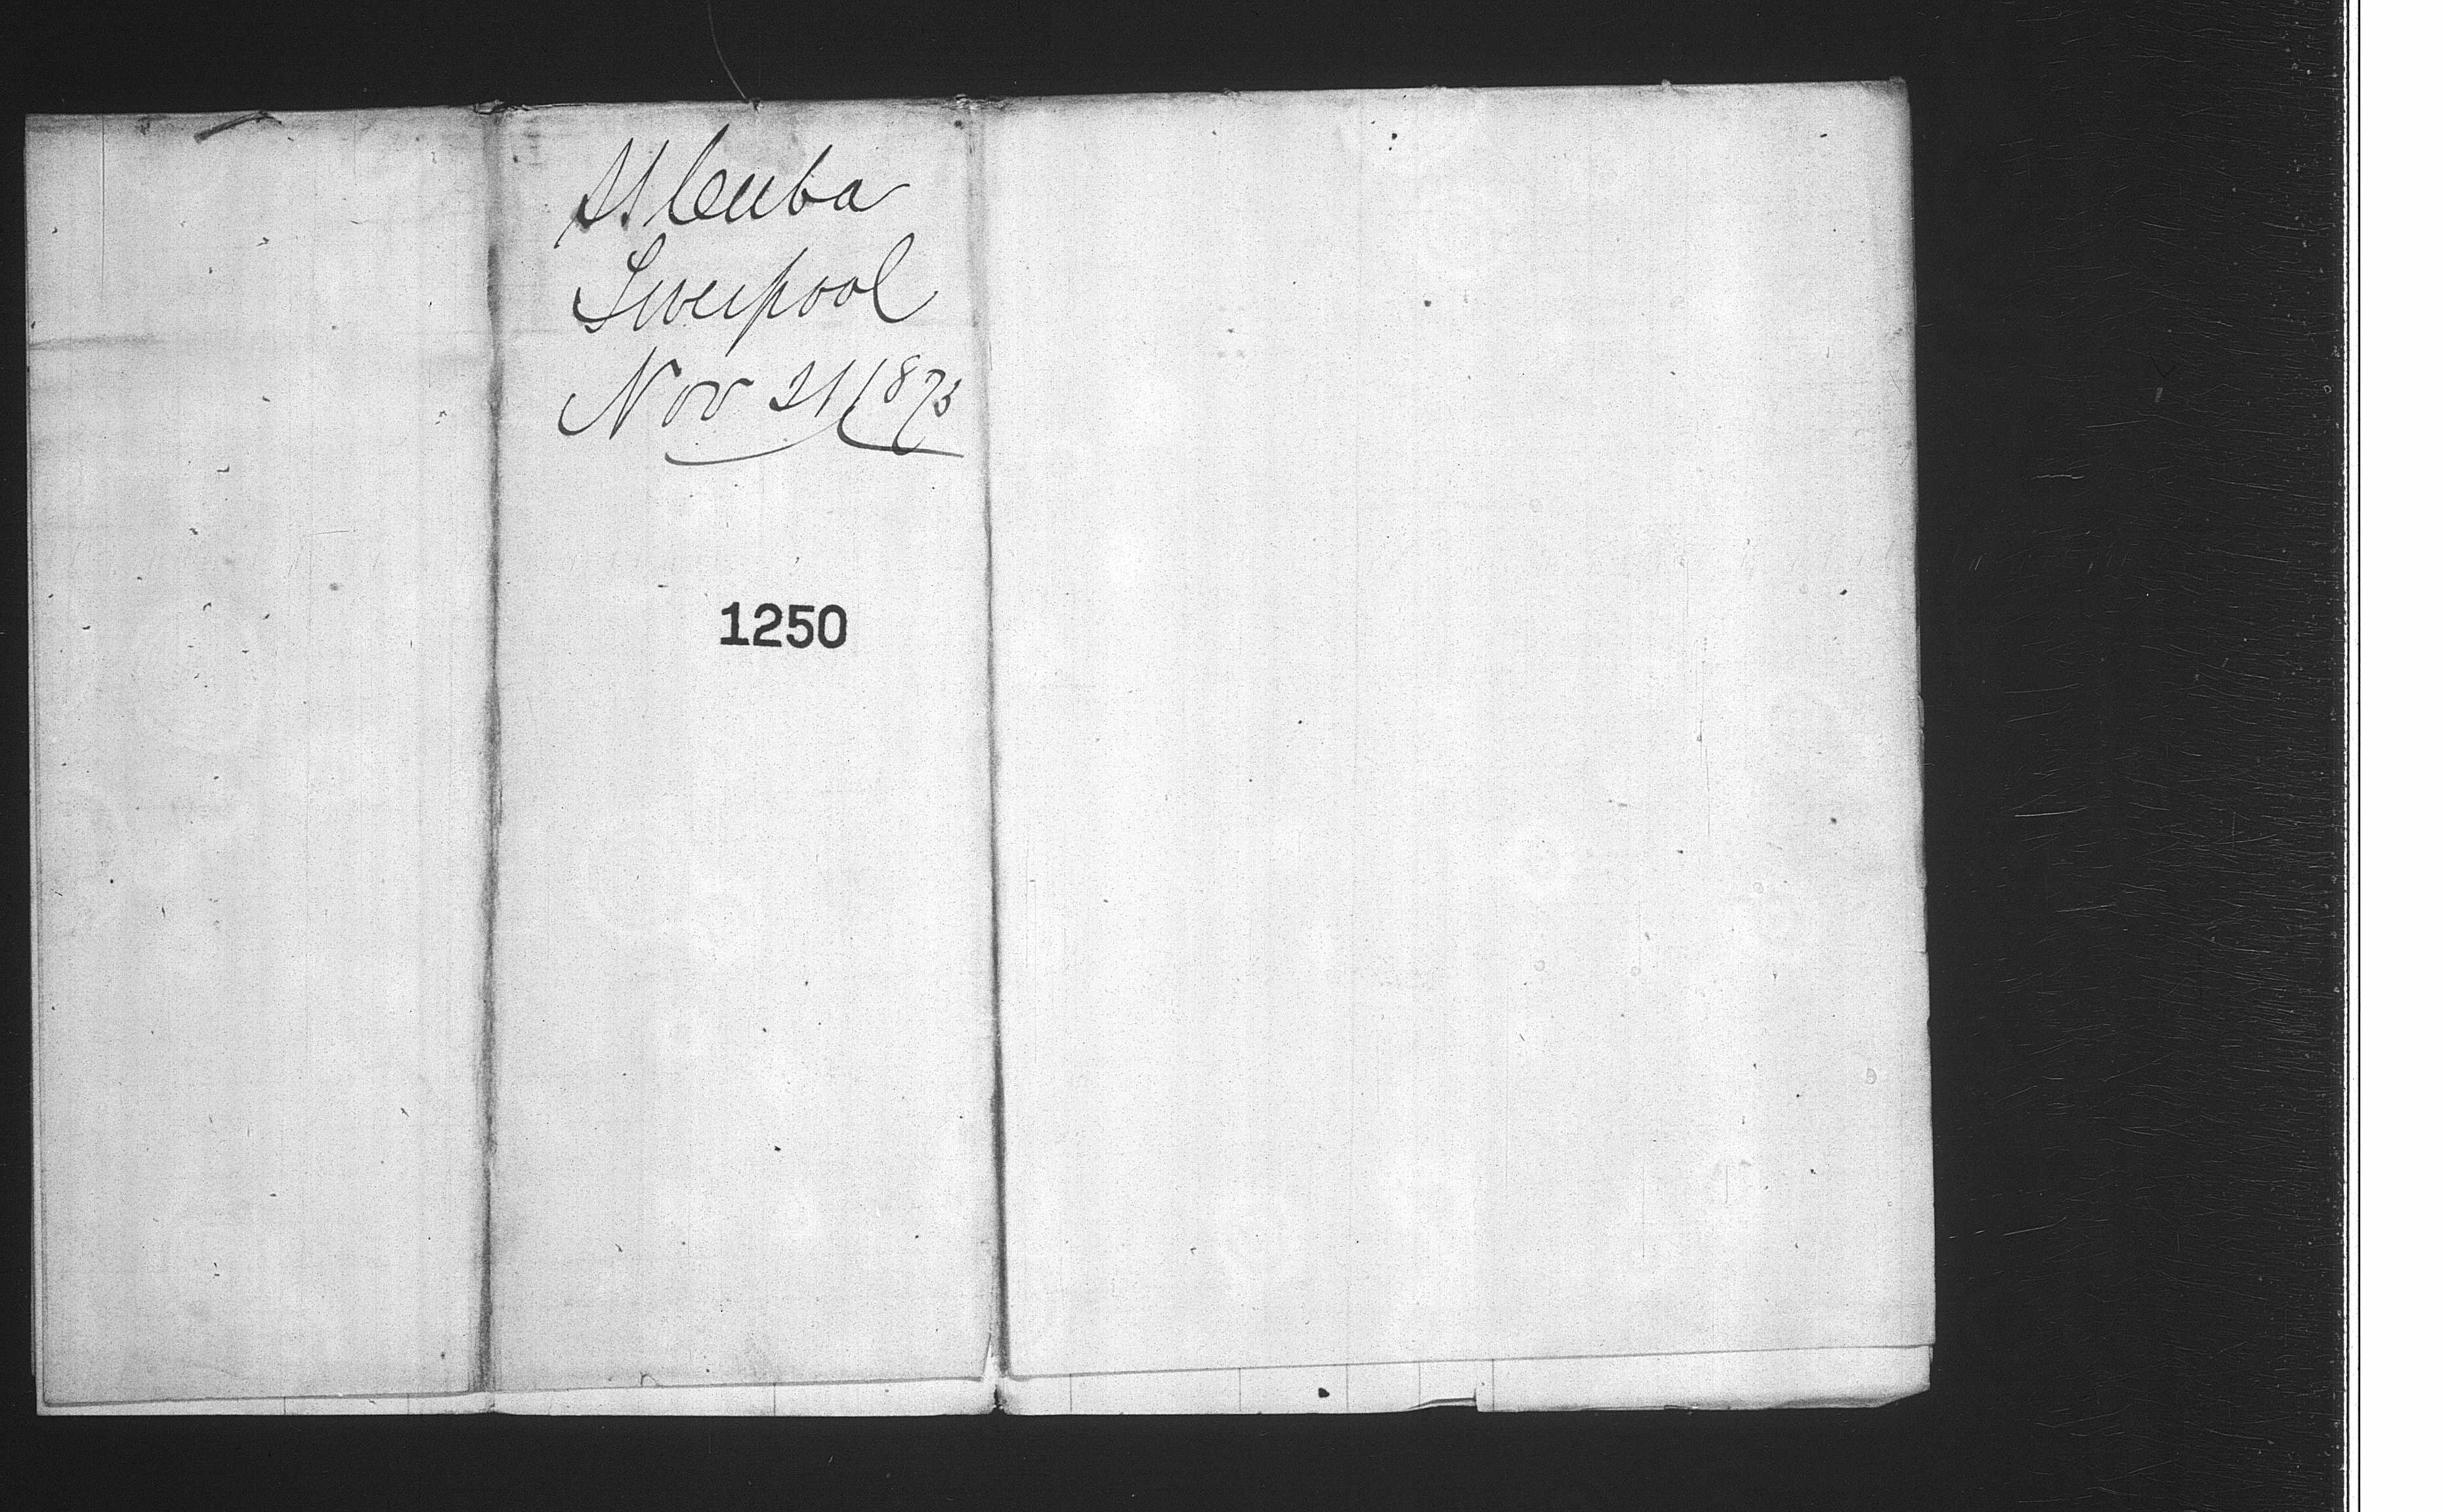 SS Cuba
Liverpool
Nov 21 1873
1250